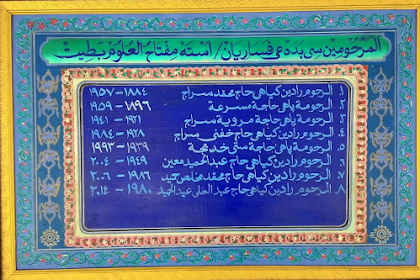 المرحومين سي بده عي فساريان / استه مفتاح العلوم بطيت
١. المرحوم رادين كياهي حاج محمد سراج ١٨٨٤-١٩٥٧
٢. المرحومة پاهي حاجة سرعة ١٨٩٦-١٩٥٩
٣. المرحومة حاجة مروية سراج ١٩٢١-١٩٤١
٤. المرحوم رادين كياهي حاج حفني سراج ١٩٢٨-١٩٨٤
٥. المرحومة پاهي حاجة ستي خديجة ١٩٣٩-١٩٩٣
٦. المرحوم رادين كياهي حاج عبد الحميد معين ١٩٤٩-٢٠٠٤
٧. المرحوم رادين كياهي حاج محمد مخلص حميد ١٩٨٦-٢٠٠٦
٨. المرحوم رادين كياهي حاج عبد العلي عبد الحميد ١٩٨٠-٢٠١٤